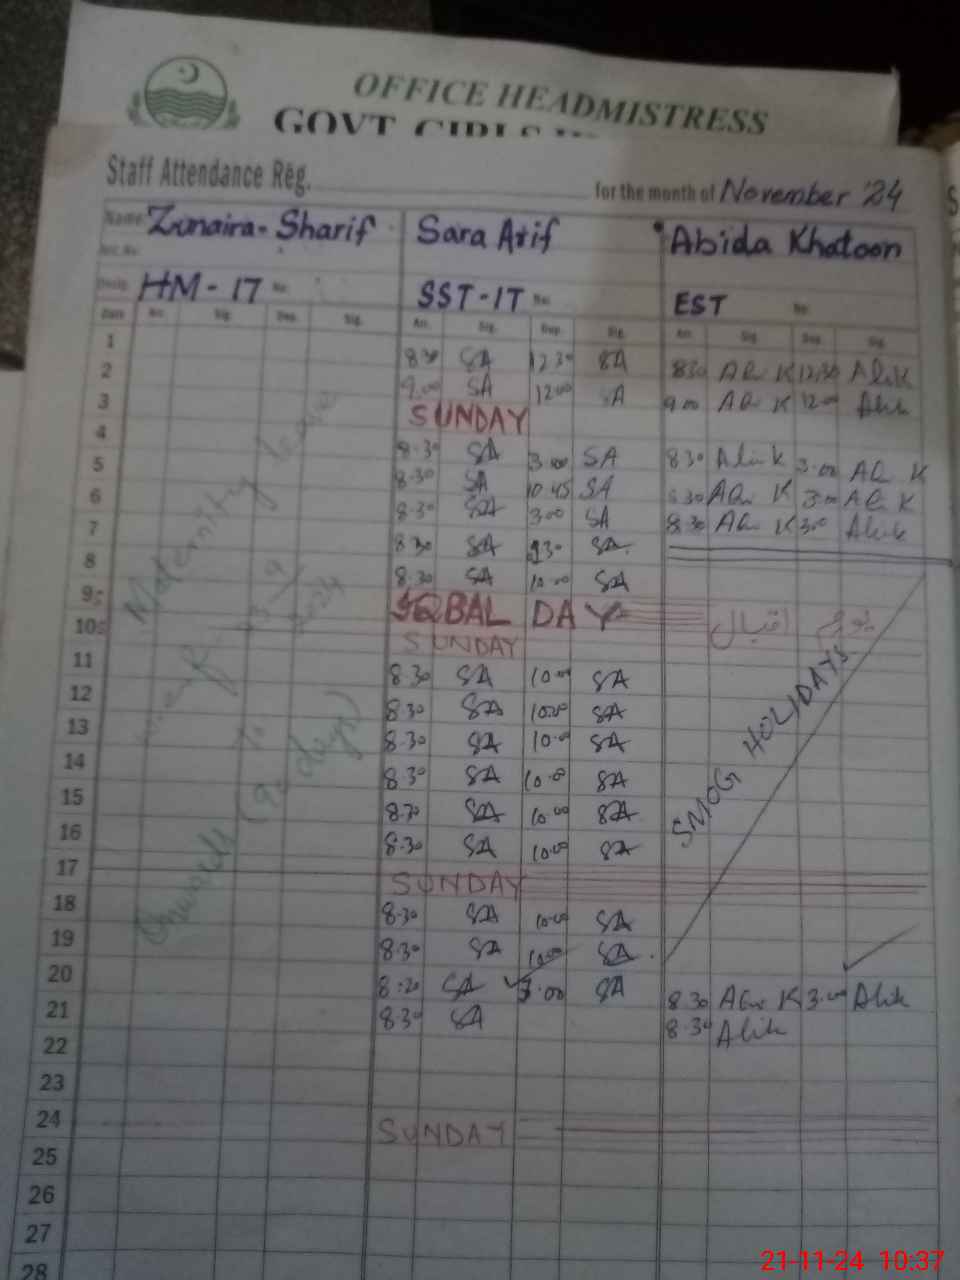 OFFICE HEADMISTRESS
GOVT GIRLS
Staff Attendance Reg. for the month of November '24
Name Zunaira - Sharif Sara Arif Abida Khatoon
Desig. HM - 17 No. SST-IT No. EST No.
Date Arr. Sig. Dep. Sig. Arr. Sig. Dep. Sig. Arr. Sig. Dep. Sig.
1 8.30 SA 12.30 SA 8.30 12.30
2 9.00 SA 12.00 SA 9.00 12.00
3 SUNDAY
4 8.30 SA 3.00 SA 8.30 3.00
5 8.30 SA 10.45 SA 8.30 3.00
6 8.30 SA 3.00 SA 8.30 3.00
7 8.30 SA SA
8 8.30 SA 10.00 SA
9 IQBAL DAY اقبال
10 SUNDAY
11 8.30 SA 10.00 SA
12 8.30 SA 10.00 SA
13 8.30 SA 10.00 SA
14 8.30 SA 10.00 SA
15 8.30 SA 10.00 SA
16 8.30 SA 10.00 SA
17 SUNDAY
18 8.30 SA 10.00 SA
19 8.30 SA 10.00 SA
20 8.20 SA 3.00 SA 8.30 3.00
21 8.30 SA 8.30
22
23
24 SUNDAY
25
26
27
28
Maternity leave
w.e.f
2024
to
Onwards (90 days)
SMOG HOLIDAYS
21-11-24 10:37